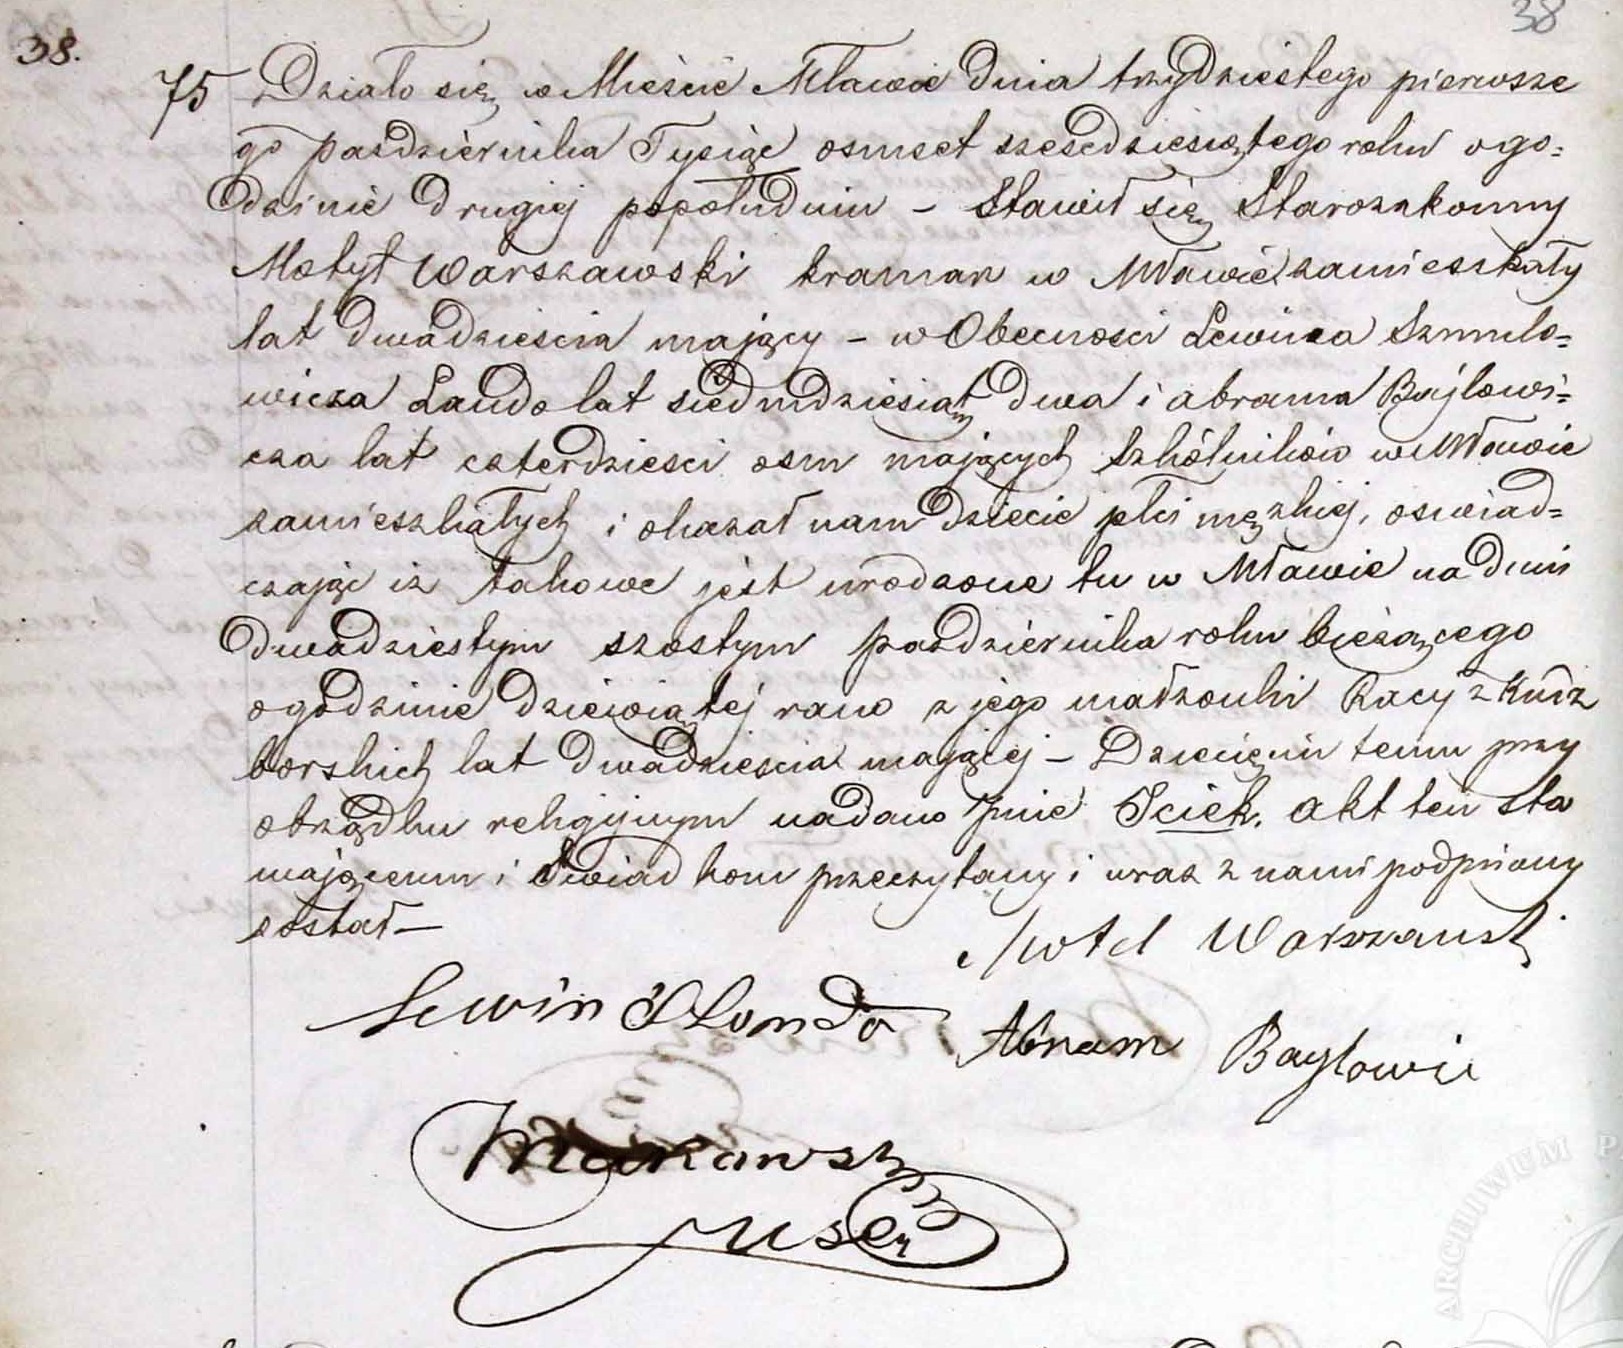 38.
38
75 Działo się w Mieście Mławie dnia trzydziestego pierwsze
go pazdziernika Tysiąc osmset szescdziesiątego roku o go=
dzinie drugiej popołudniu – Stawił się Starozakonny
Motył Warszawski kramarz w Mławie zamieszkały
lat dwadzieścia mający – w Obecnosci Lewina Szmulo=
wicza Lando lat siedmdziesiąt dwa i abrama Bajlowi=
cza lat czterdziesci osm mających Szkólników w Mławie
zamieszkałych i okazał nam dziecie płci męzkiej, oswiad=
czając iz takowe jest urodzone tu w Mławie na dniu
dwudziestym szostym pazdziernika roku bieżącego
o godzinie dziewiątej rano z jego małzonki Racy z Kudz
borskich lat dwadziescia mającej – Dziecięciu temu przy
obrządku religijnym nadano imie Iciek. akt ten sta
wającemu i Swiadkom przeczytany i wraz z nami podpisany
został –
Motel Warszawski
Lewin S Londo Abram Baylowic
Makowski
ARCHIWUM P